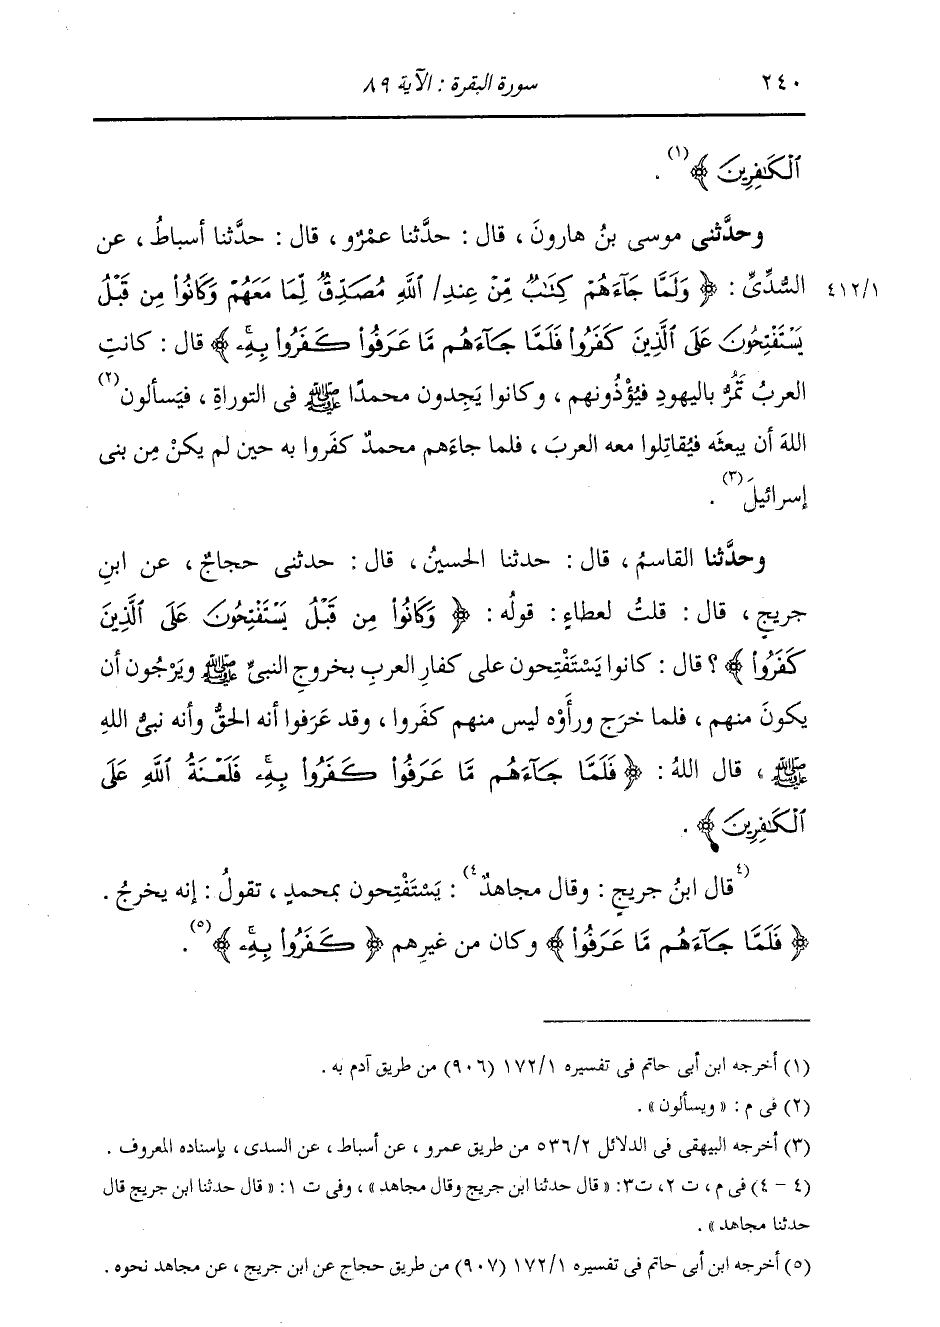 ٢٤٠ سورة البقرة : الآية ٨٩
ٱلْكَٰفِرِينَ ﴾(١) .
وحدَّثنى موسى بنُ هارونَ ، قال : حدَّثنا عمْرٌو ، قال : حدَّثنا أسباطُ ، عن
٤١٢/١ السُّدِّىِّ : ﴿ وَلَمَّا جَآءَهُمْ كِتَٰبٌ مِّنْ عِندِ/ ٱللَّهِ مُصَدِّقٌ لِّمَا مَعَهُمْ وَكَانُوا۟ مِن قَبْلُ
يَسْتَفْتِحُونَ عَلَى ٱلَّذِينَ كَفَرُوا۟ فَلَمَّا جَآءَهُم مَّا عَرَفُوا۟ كَفَرُوا۟ بِهِۦ ﴾ قال : كانتِ
العربُ تَمُرُّ باليهودِ فيُؤْذُونهم ، وكانوا يَجِدون محمدًا ﷺ فى التوراةِ ، فيَسألون(٢)
اللهَ أن يبعثَه فيُقاتِلوا معه العربَ ، فلما جاءَهم محمدٌ كفَروا به حين لم يكنْ مِن بنى
إسرائيلَ(٣) .
وحدَّثنا القاسمُ ، قال : حدثنا الحسينُ ، قال : حدثنى حجاجٌ ، عن ابنِ
جريجٍ ، قال : قلتُ لعطاءٍ : قولُه : ﴿ وَكَانُوا۟ مِن قَبْلُ يَسْتَفْتِحُونَ عَلَى ٱلَّذِينَ
كَفَرُوا۟ ﴾ ؟ قال : كانوا يَسْتَفْتِحون على كفارِ العربِ بخروجِ النبىِّ ﷺ ويَرْجُون أن
يكونَ منهم ، فلما خرَج ورأَوْه ليس منهم كفَروا ، وقد عَرَفوا أنه الحقُّ وأنه نبىُّ اللهِ
ﷺ ، قال اللهُ : ﴿ فَلَمَّا جَآءَهُم مَّا عَرَفُوا۟ كَفَرُوا۟ بِهِۦ فَلَعْنَةُ ٱللَّهِ عَلَى
ٱلْكَٰفِرِينَ ﴾ .
(٤قال ابنُ جريجٍ : وقال مجاهدٌ٤) : يَسْتَفْتِحون بمحمدٍ ، تقولُ : إنه يخرجُ .
﴿ فَلَمَّا جَآءَهُم مَّا عَرَفُوا۟ ﴾ وكان من غيرِهم ﴿ كَفَرُوا۟ بِهِۦ ﴾(٥) .
(١) أخرجه ابن أبى حاتم فى تفسيره ١٧٢/١ (٩٠٦) من طريق آدم به .
(٢) فى م : « ويسألون » .
(٣) أخرجه البيهقى فى الدلائل ٥٣٦/٢ من طريق عمرو ، عن أسباط ، عن السدى ، بإسناده المعروف .
(٤ - ٤) فى م ، ت ٢، ت٣: « قال حدثنا ابن جريج وقال مجاهد » ، وفى ت ١: « قال حدثنا ابن جريج قال
حدثنا مجاهد » .
(٥) أخرجه ابن أبى حاتم فى تفسيره ١٧٢/١ (٩٠٧) من طريق حجاج عن ابن جريج ، عن مجاهد نحوه .